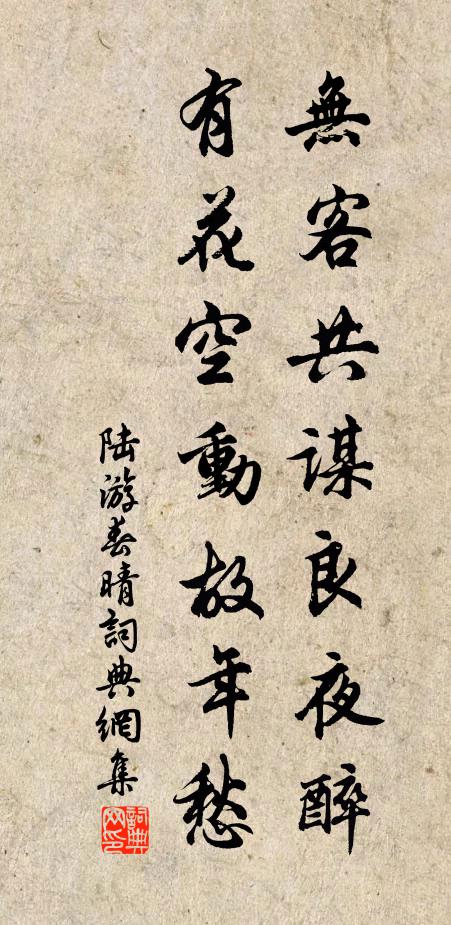 無客共謀良夜醉
有花空動故年愁
陸游春晴詞典網集
詞典網印